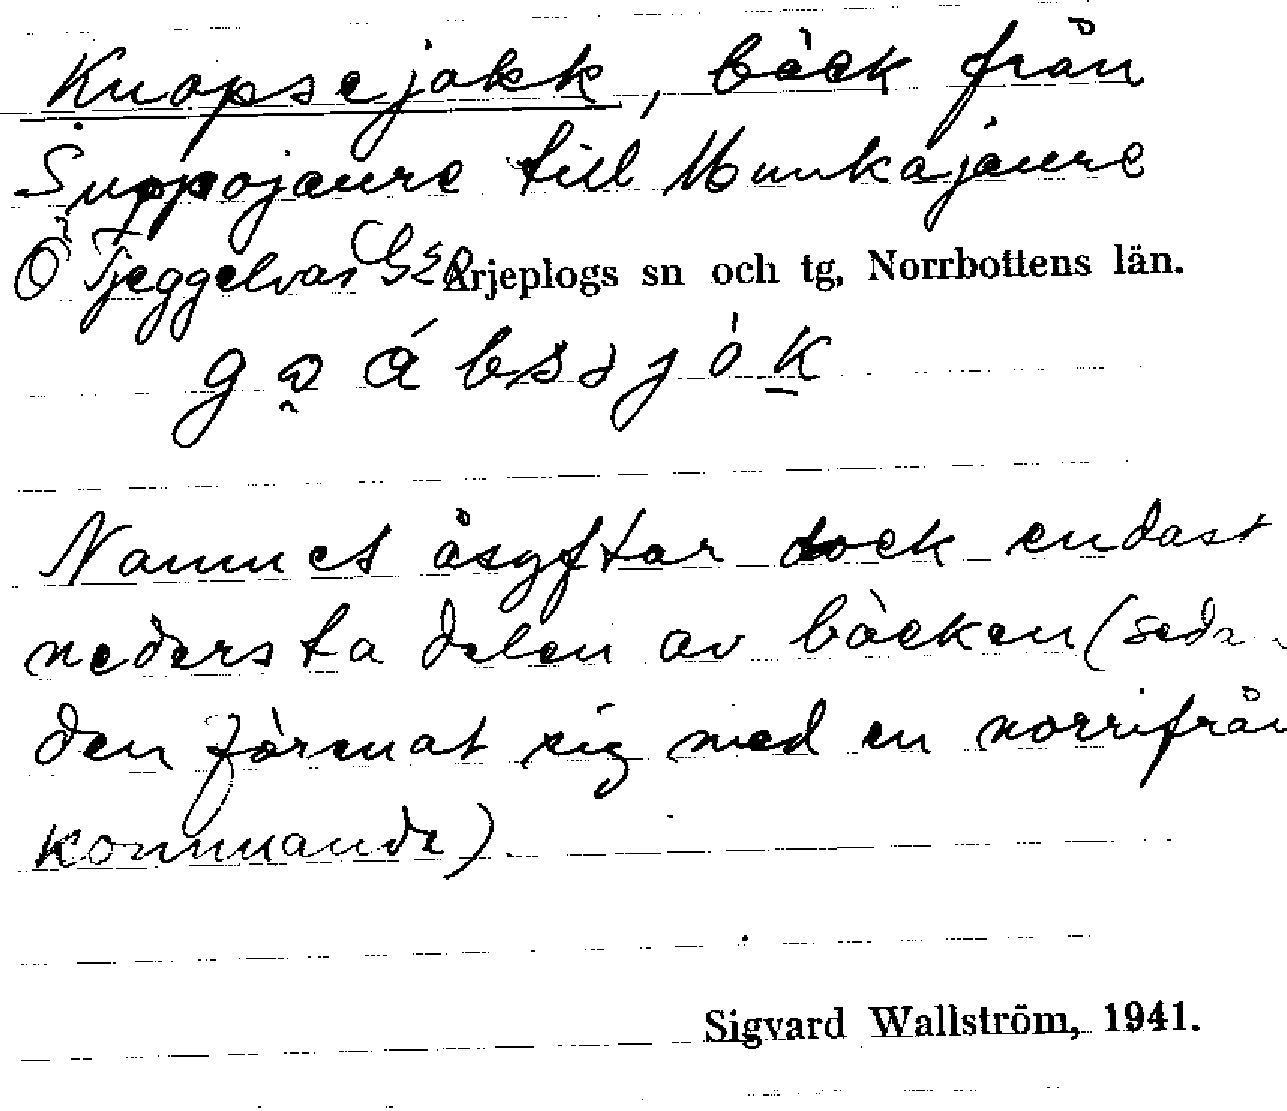 Kuopsejokk, bäck från
Suppojaure till Munkajaure
Ö Tjeggelvas G2 Arjeplogs sn och tg, Norrbottens län.
Namnet åsyftar dock endast
nedersta delen av bäcken (seda
den förenat sig med en norrifrån
kommande)
Sigvard Wallström, 1941.